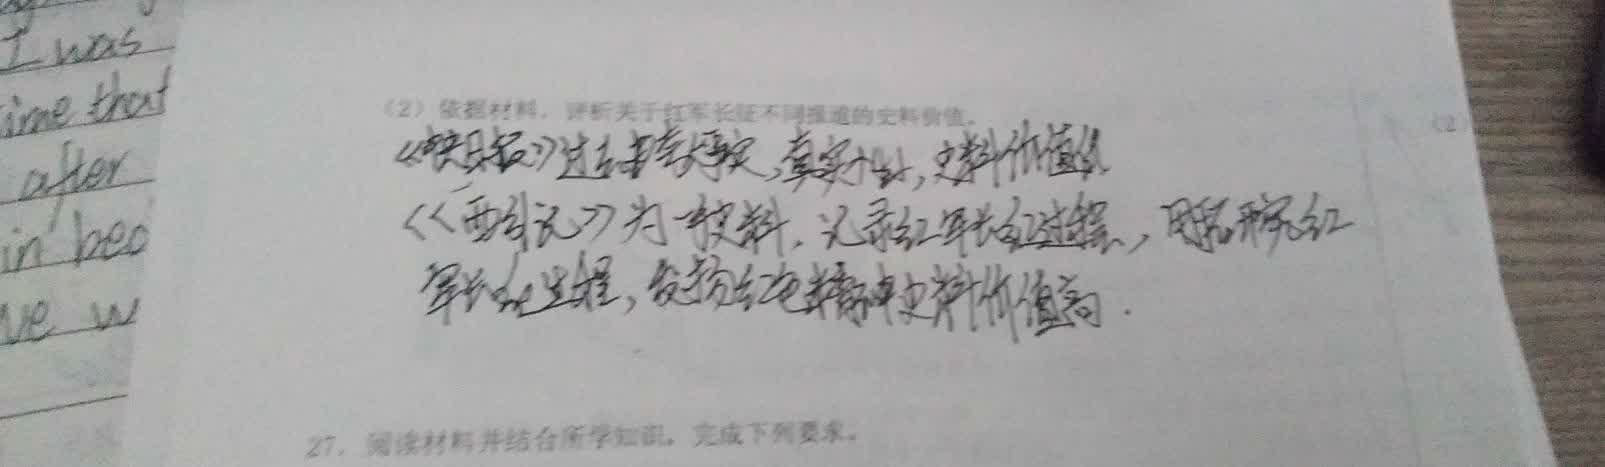 I was
time that
after
in bed
ve w
(2) 依据材料，评析关于红军长征不同报道的史料价值。
《快日报》过后事实，真实性，史料价值低
《西行记》为一史料，记录红军长征过程，用于研究红
军长征过程，发扬红色精神史料价值高.
(2)
27. 阅读材料并结合所学知识，完成下列要求。